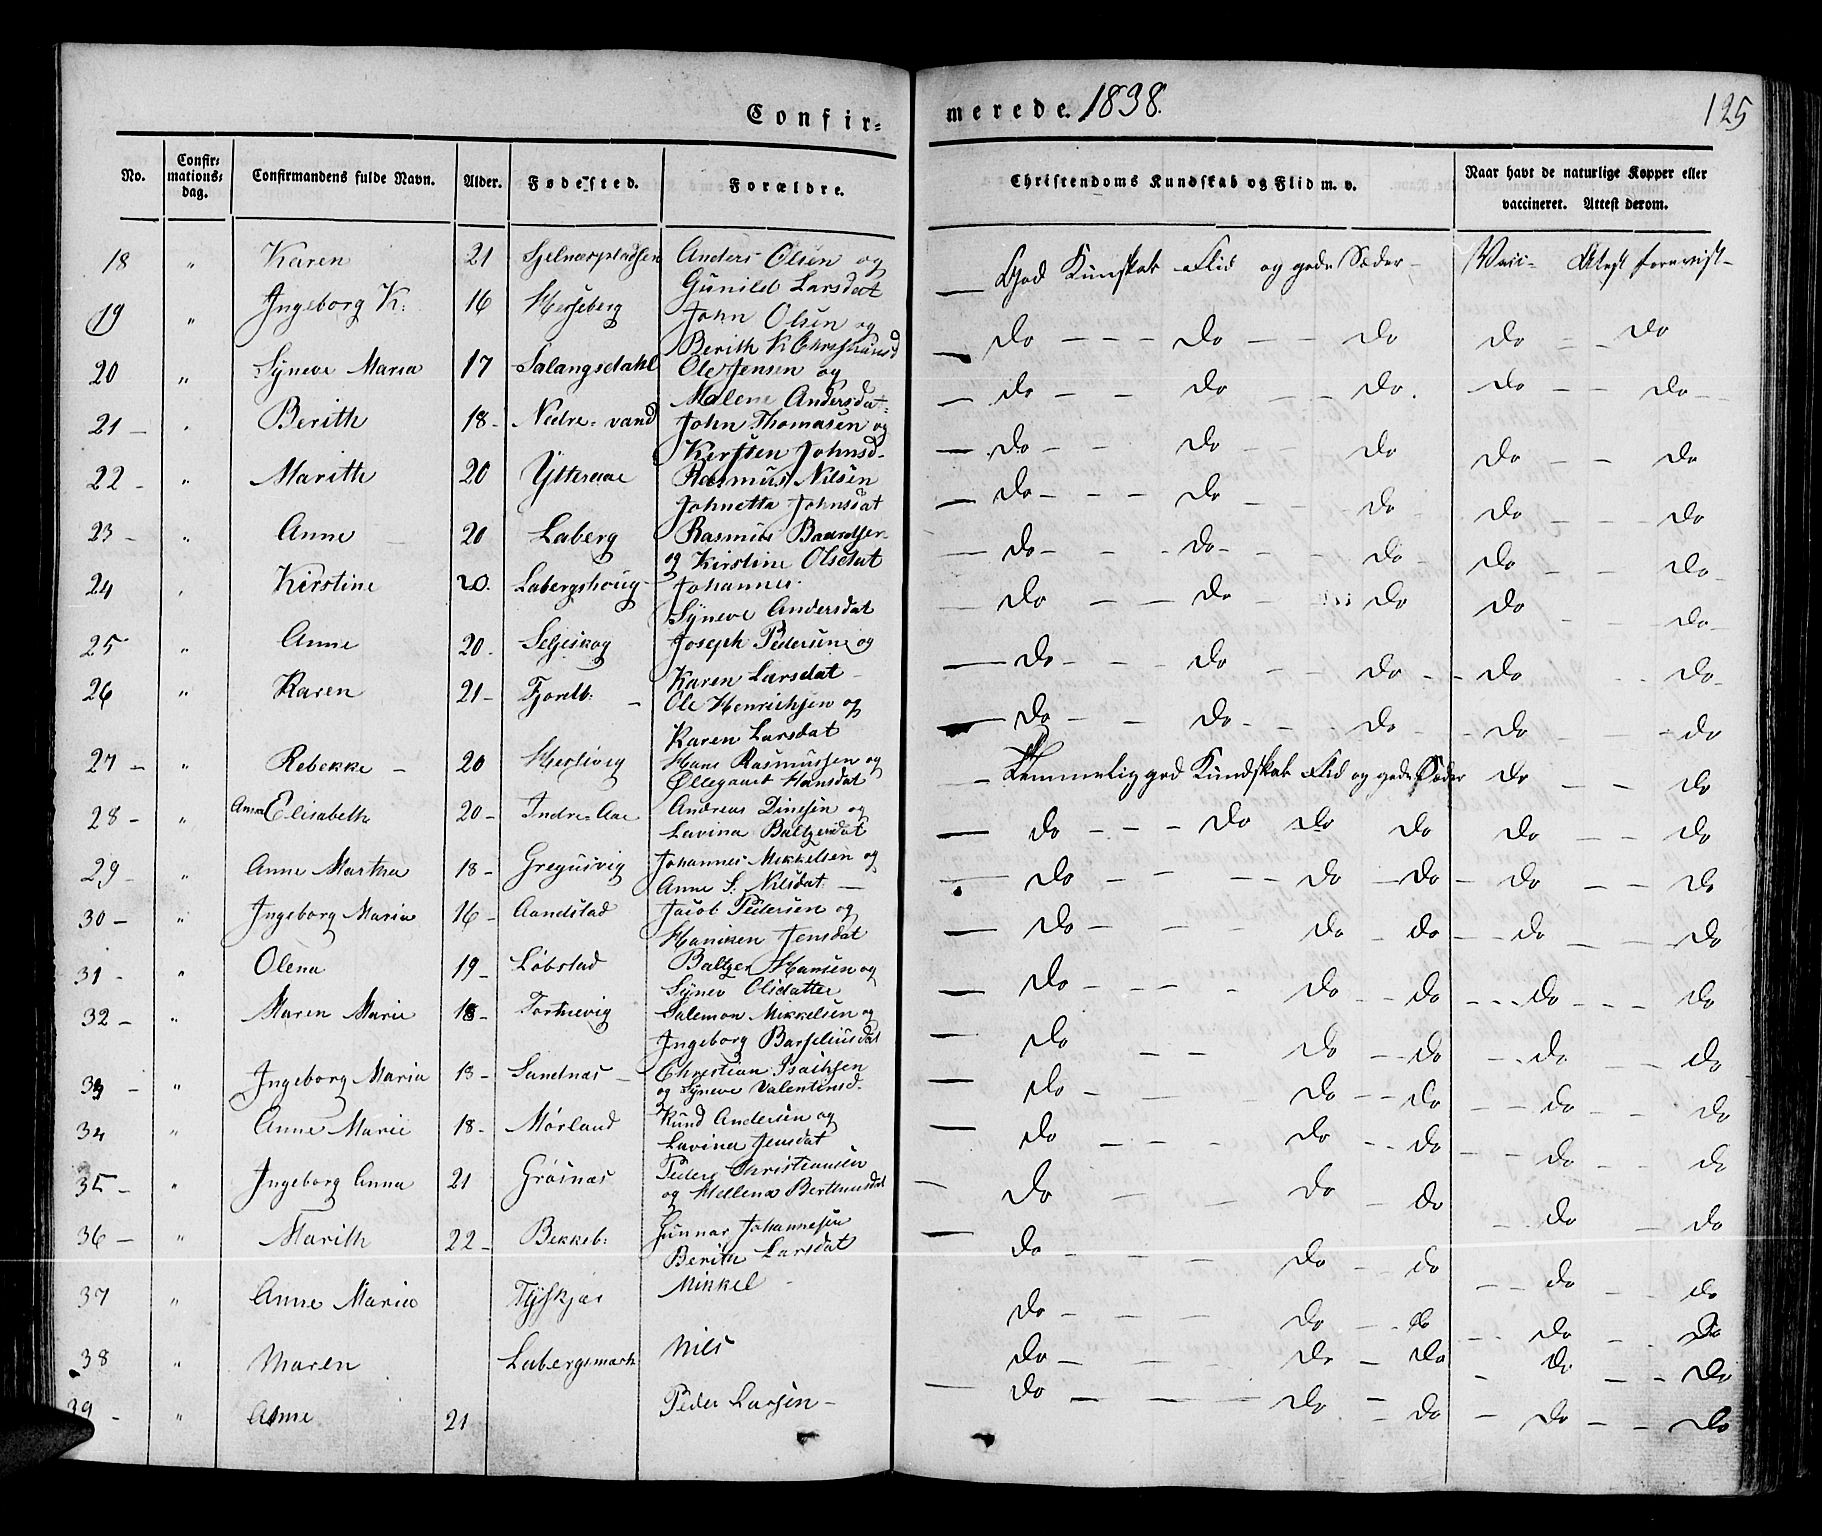 Confir=
merede. 1838.
125
No.
Confir=
mations=
dag.
Confirmandens fulde Navn.
Alder.
Fødested.
Forældre.
Christendoms Kundskab og Flid m. v.
Naar havt de naturlige Kopper eller
vaccineret. Attest derom.
18 " Karen 21 Anders Olsen og God Kundskab Flid og gode Sæder - Vacc- Attest forevist -
Gunild Larsdat
19 " Ingeborg K: 16 Hersberg John Olsen og do - - - do - - do do - - do
Berith K
20 " Syneve Maria 17 Salangsdahl Ole Jensen og do - - do - - do. do - - do -
Malene Andersdat:
21 - " Berith 18 - Nedre-vand John Thomasen og do - - do - - do do - - do
Kersten Johnsd-
22 - " Marith 20 Rasmus Nilsen do - - - do - - do do - - - do
Johnetta Johnsdat
23 - " Anne 20 Laberg Rasmus Baardsen do - - - do - - - do do - - - do -
og Kirstine Olsdat
24 " Kirstine 20. Labergshoug - Johannes. do - - do - - do do - - do -
Syneve Andersdat
25 " Anne 20. Seljeskog Joseph Pedersen og do - - - do - - do - - do - - do -
Karen Larsdat -
26 " Karen 21 - Fjordb: - Ole Henrichsen og do - - - do - - - do - - do - - - do
Karen Larsdat
27 - " Rebekke - 20 Hans Rasmussen og - Temmelig god Kundskab Flid og gode Sæder do - - do
Øllegaard Hansdat
28 - " Anne Elisabeth 20 - Indre-Aae Andreas Dinesen og do - - - do do do do - - do
Lavina Baltzersdat
29 - " Anne Martha 18 - Gregusvig Johannes Mikkelsen og do - - - - do - do - do - - do
Anne S. Nilsdat -
30 - " Ingeborg Maria 16 - Aandstad Jacob Pedersen og do - - - do - do - - do - - - do
Haniken Jensdat
31 - " Olena 19 - Løbstad Baltzer Hansen og do - - - - do - - do - - - do - - - do
Synev Olsdatter
32 - " Maren Marie 18 - Salemon Mikkelsen og do - - do - - do - - - do - - do
Ingeborg
33 - " Ingeborg Maria 18 - Sandnas - Christian Isachsen do - - - do - - do - - - do - - - do
og Syneve Valentinsd.
34 " Anne Marie 18 - Mørland Knud Andersen og do - - - do - - do - - do - - do
Lavina Jensdat
35 - " Ingeborg Anna 21 Grøsnas Peder Christiansen do - - do - do - do - do
og Hellena
36 - " Marith 22 - Bekkeb: Gunnar Johannesen do - - do - do - - do - - do
Berith Larsdat
37 " Anne Maria Mikkel - do - - - do - - do - - do - - do
38 " Maren Labergsmark Nils do - - - do - do - do - - do
39 - " Anne 21 Peder Larsen - do - - - do - do - do - - do